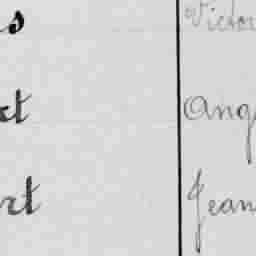 s Victor
et Ang
rt Jean